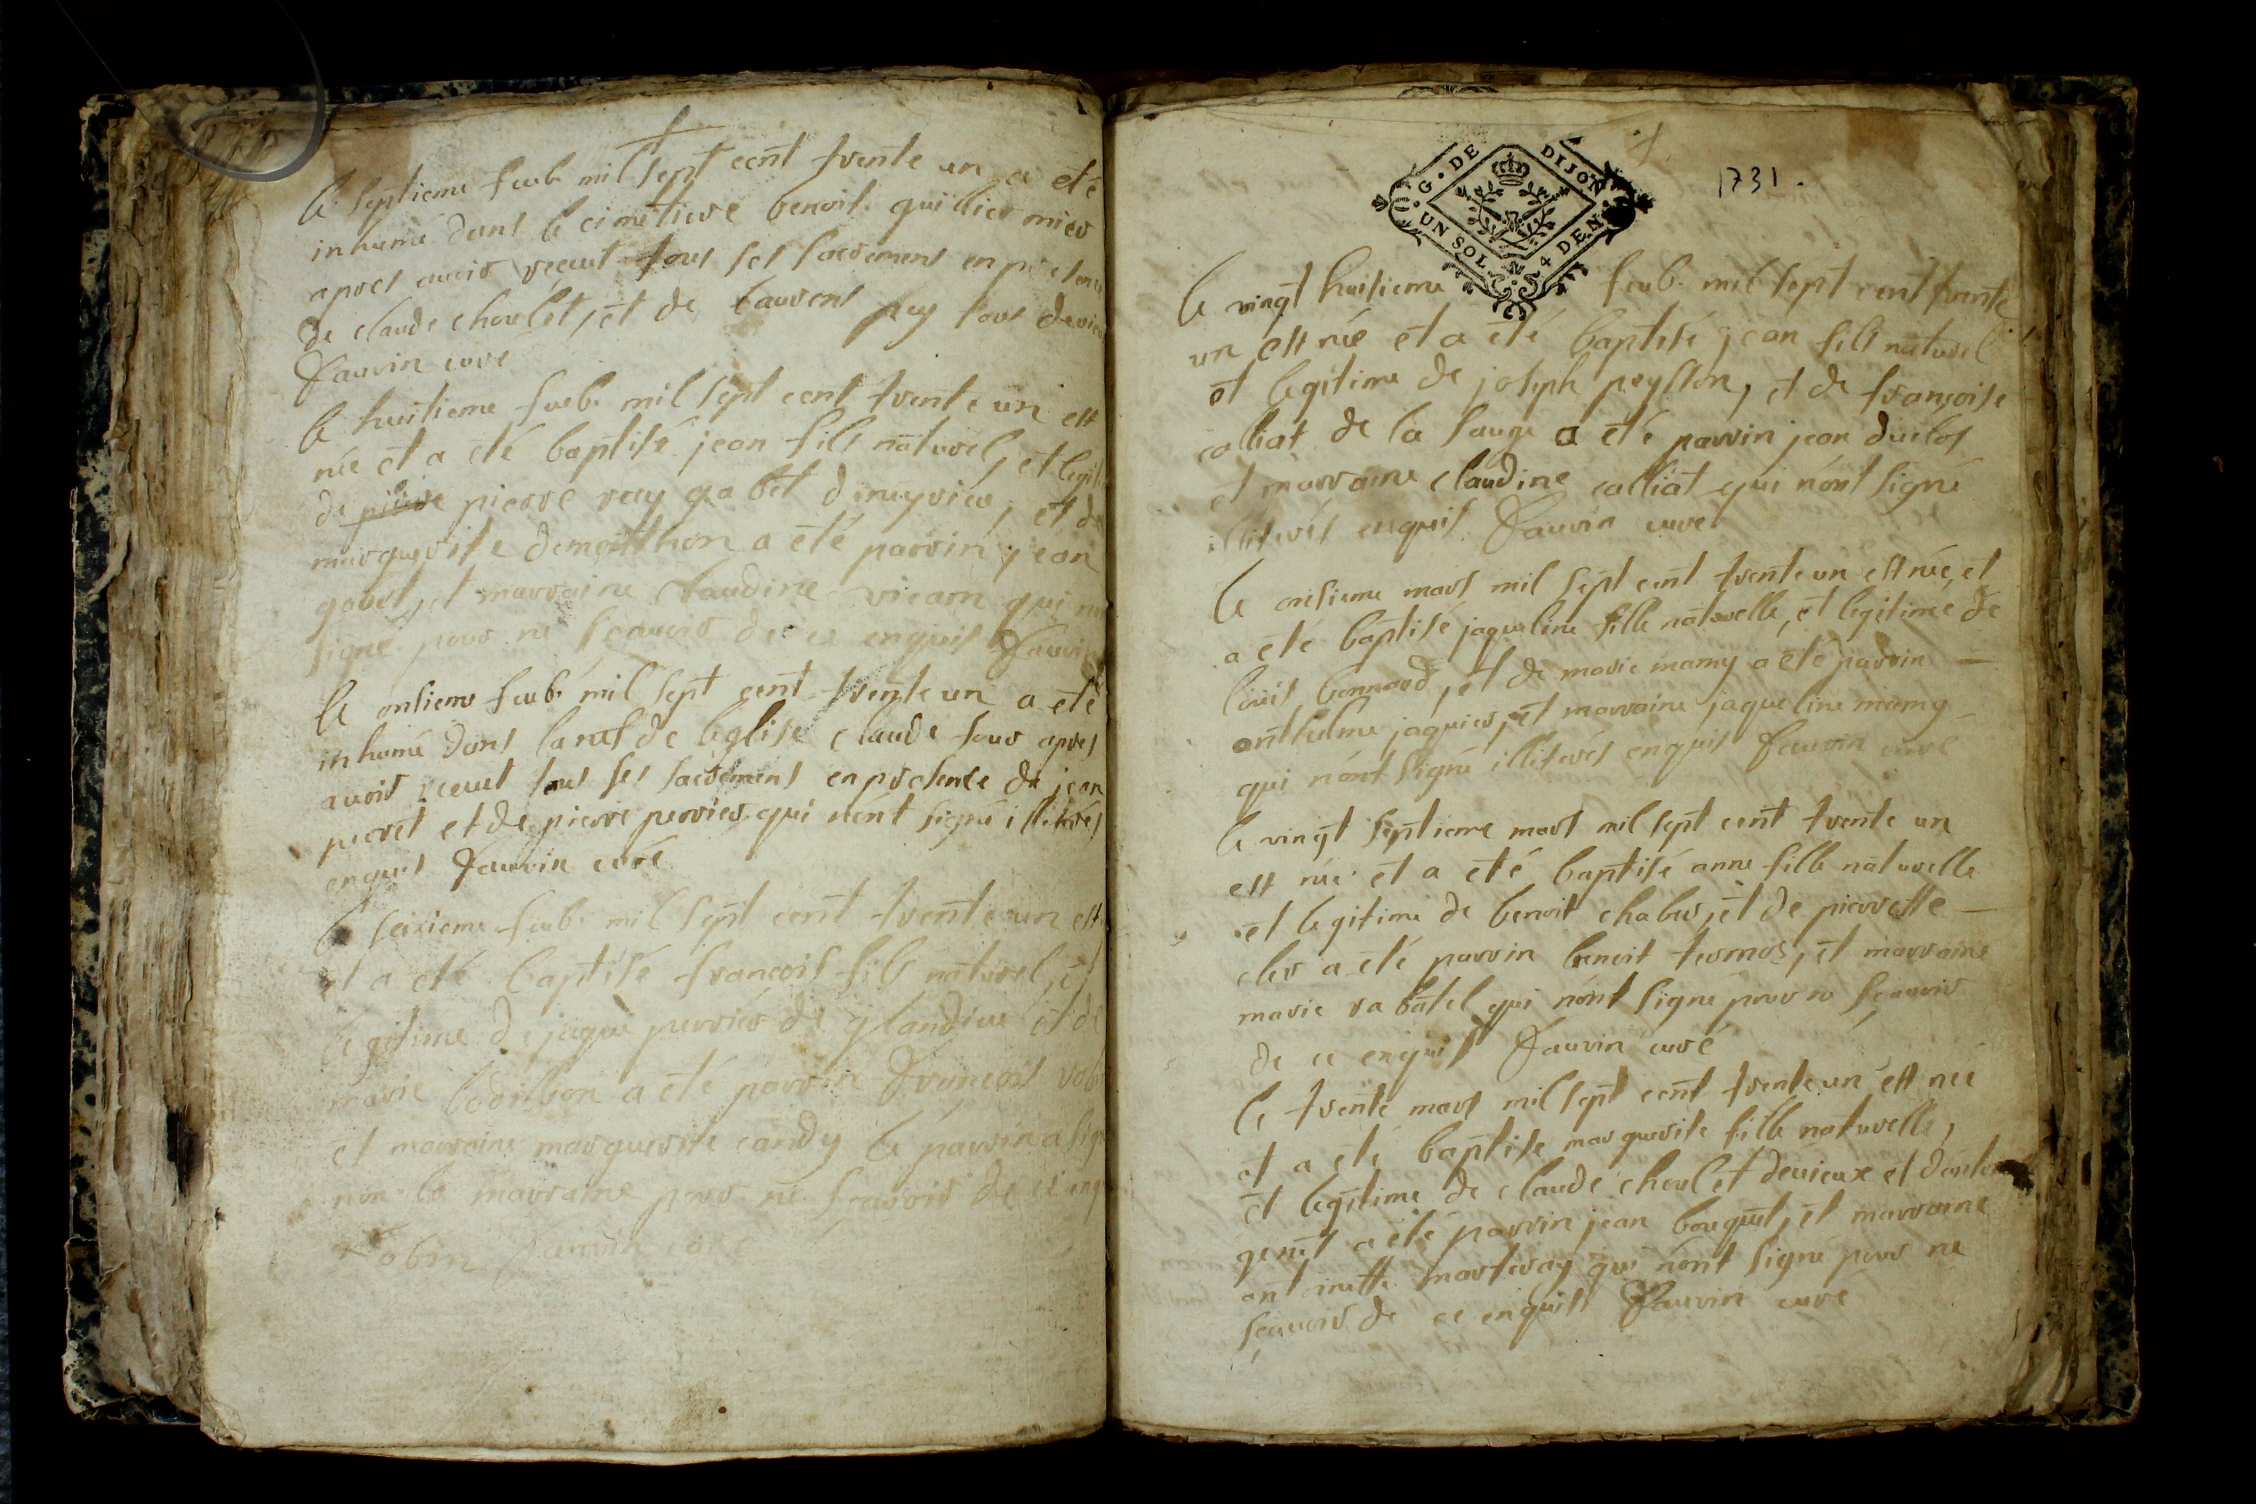 le septieme feub. mil sept cent trente un a eté
inhumé dans le cimetiere benoit quillier mier
apres avoir receut tous ses sacremens en presence
de claude choulet, et de laurent puy tous devieu
Fauvin curé
le huitieme feub. mil sept cent trente un est
née et a eté baptisé jean fils naturel, et legit
de pierre pierre rey gabet dmeyrieu, et de
marguerite demonthon a eté parrin jean
gabet, et marraine claudine vicam qui n
signé pour ne scavoir de ce enquis Fauvin
le onsieme feub. mil sept cent trente un a eté
inhumé dans la nef de leglise claude four apres
avoir receut tous ses sacremens en presence de jean
pieret et de pierre perrier qui nónt signé illiterés
enquis Fauvin curé
le seixieme feub. mil sept cent trente un est
et a eté baptisé françois fils naturel, et
legitime de jaque perrier de glandieu et de
marie bodilbon a eté parrin François rob
et marraine marguerite candy le parrin a sig
non la marraine pour ne scavoir de ce enq
Robin Fauvin curé
G. DE DIJON
UN SOL 4 DEN.
1731.
le vingt huitieme feub. mil sept cent trente
un est née et a eté baptisé jean fils naturel
et legitime de joseph peysson, et de françoise
calliat de la sauge a eté parrin jean duclos
et marraine claudine calliat qui nónt signé
illiterés enquis Fauvin curé
le onsieme mars mil sept cent trente un est née, et
a eté baptisé jaqueline fille naturelle, et legitime de
louis bonnard, et de marie mamy a eté parrin
anthelme jaquier, et marraine jaqueline mamy
qui nónt signé illiterés enquis Fauvin curé
le vingt septieme mars mil sept cent trente un
est née et a eté baptisé anne fille naturelle
et legitime de benoit chaber, et de pierrette
cler a eté parrin benoit termos, et marraine
marie rabatel qui nont signé pour ne scavoir
de ce enquis Fauvin curé
le trente mars mil sept cent trente un est née
et a eté baptisé marguerite fille naturelle,
et legitime de claude choulet devieux et dantoi
genet a eté parrin jean bouquet, et marraine
antoinette marteray qui nónt signé pour ne
scavoir de ce enquis Fauvin curé